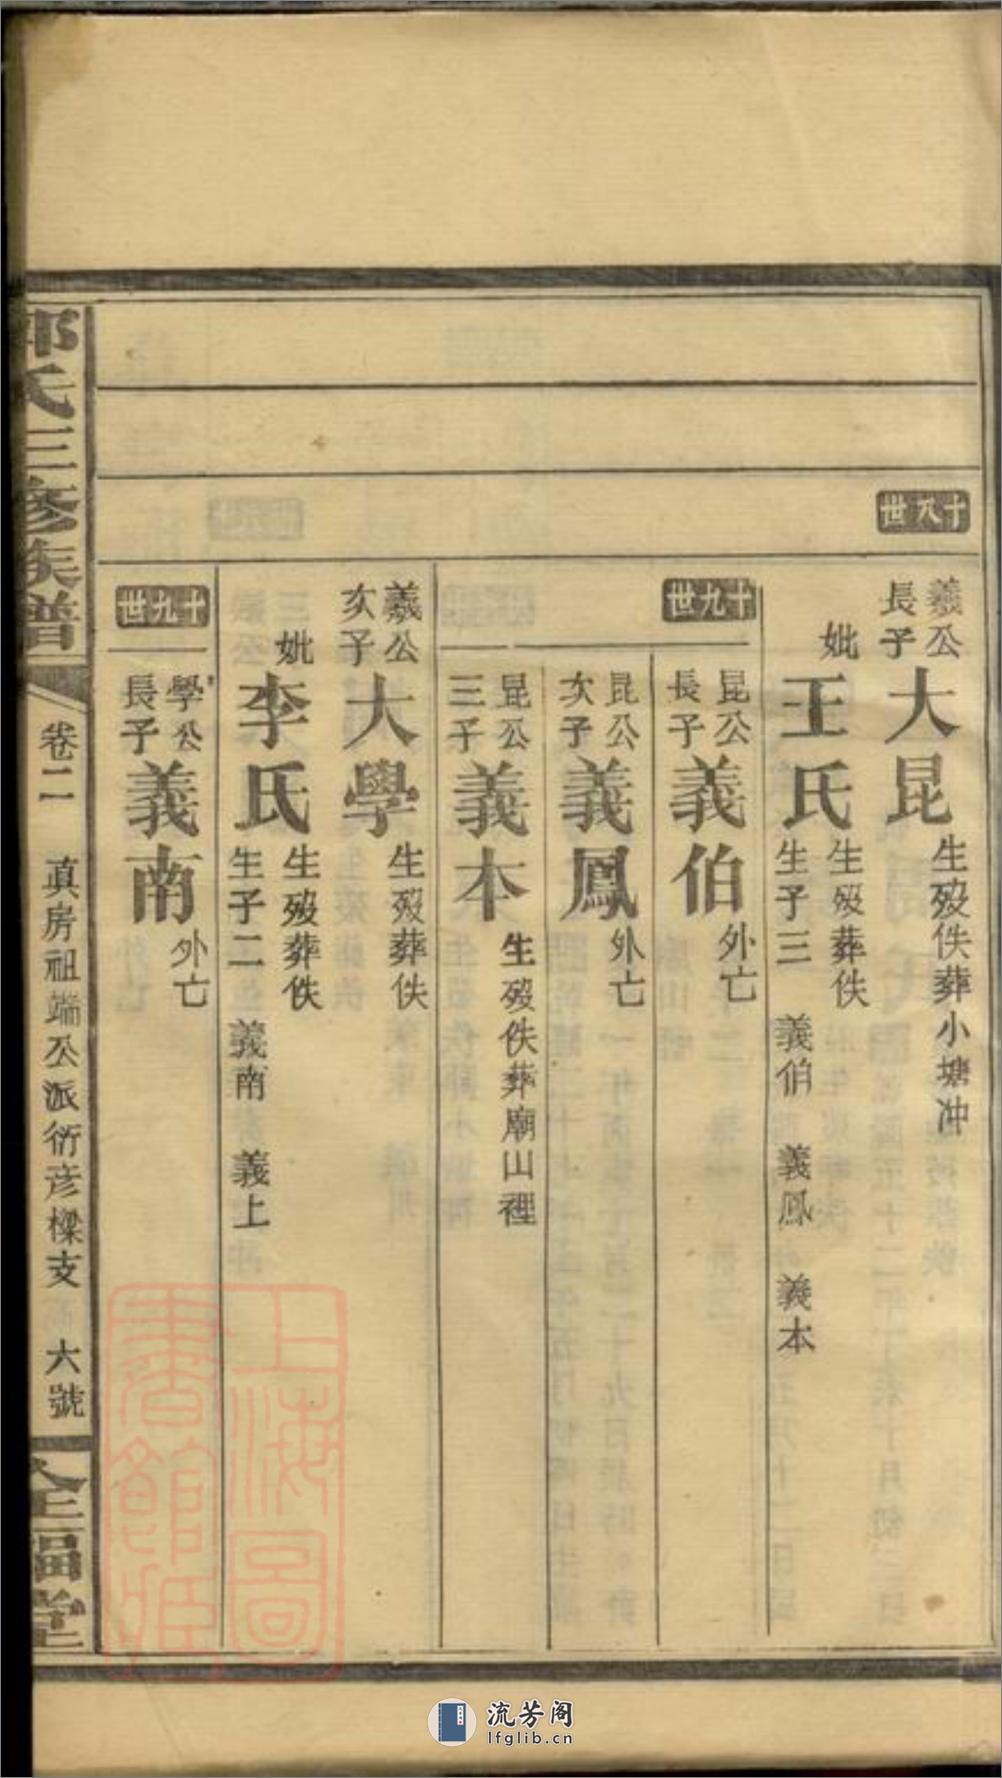 十八世
羲公長子
大昆
生歿佚葬小塘冲
妣
王氏
生歿葬佚
生子三 義伯 義鳳 義本
十九世
昆公長子
義伯
外亡
昆公次子
義鳳
外亡
昆公三子
義本
生歿佚葬廟山裡
羲公次子
大學
生歿葬佚
妣
李氏
生歿葬佚
生子二 義南 義上
十九世
學公長子
義南
外亡
郭氏三修族譜
卷二 真房祖端公派衍彦樑支 六號
全福堂
上海圖書館藏
流芳阁
lfglib.cn